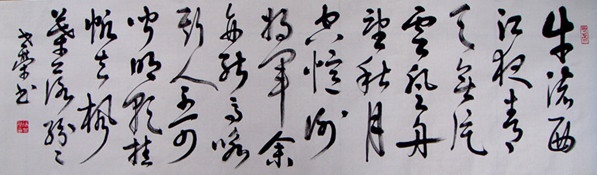 牛渚西
江夜青
天無片
雲登舟
望秋月
空憶謝
將軍余
亦能高咏
斯人不可
聞明朝挂
帆去楓
葉落紛〻
榮書